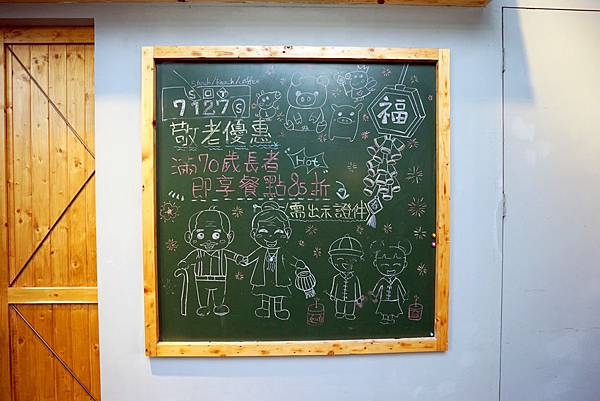 5 回 T
7127⑤
福
敬老優惠
滿70歲長者
Hot
即享餐點85折
需出示證件